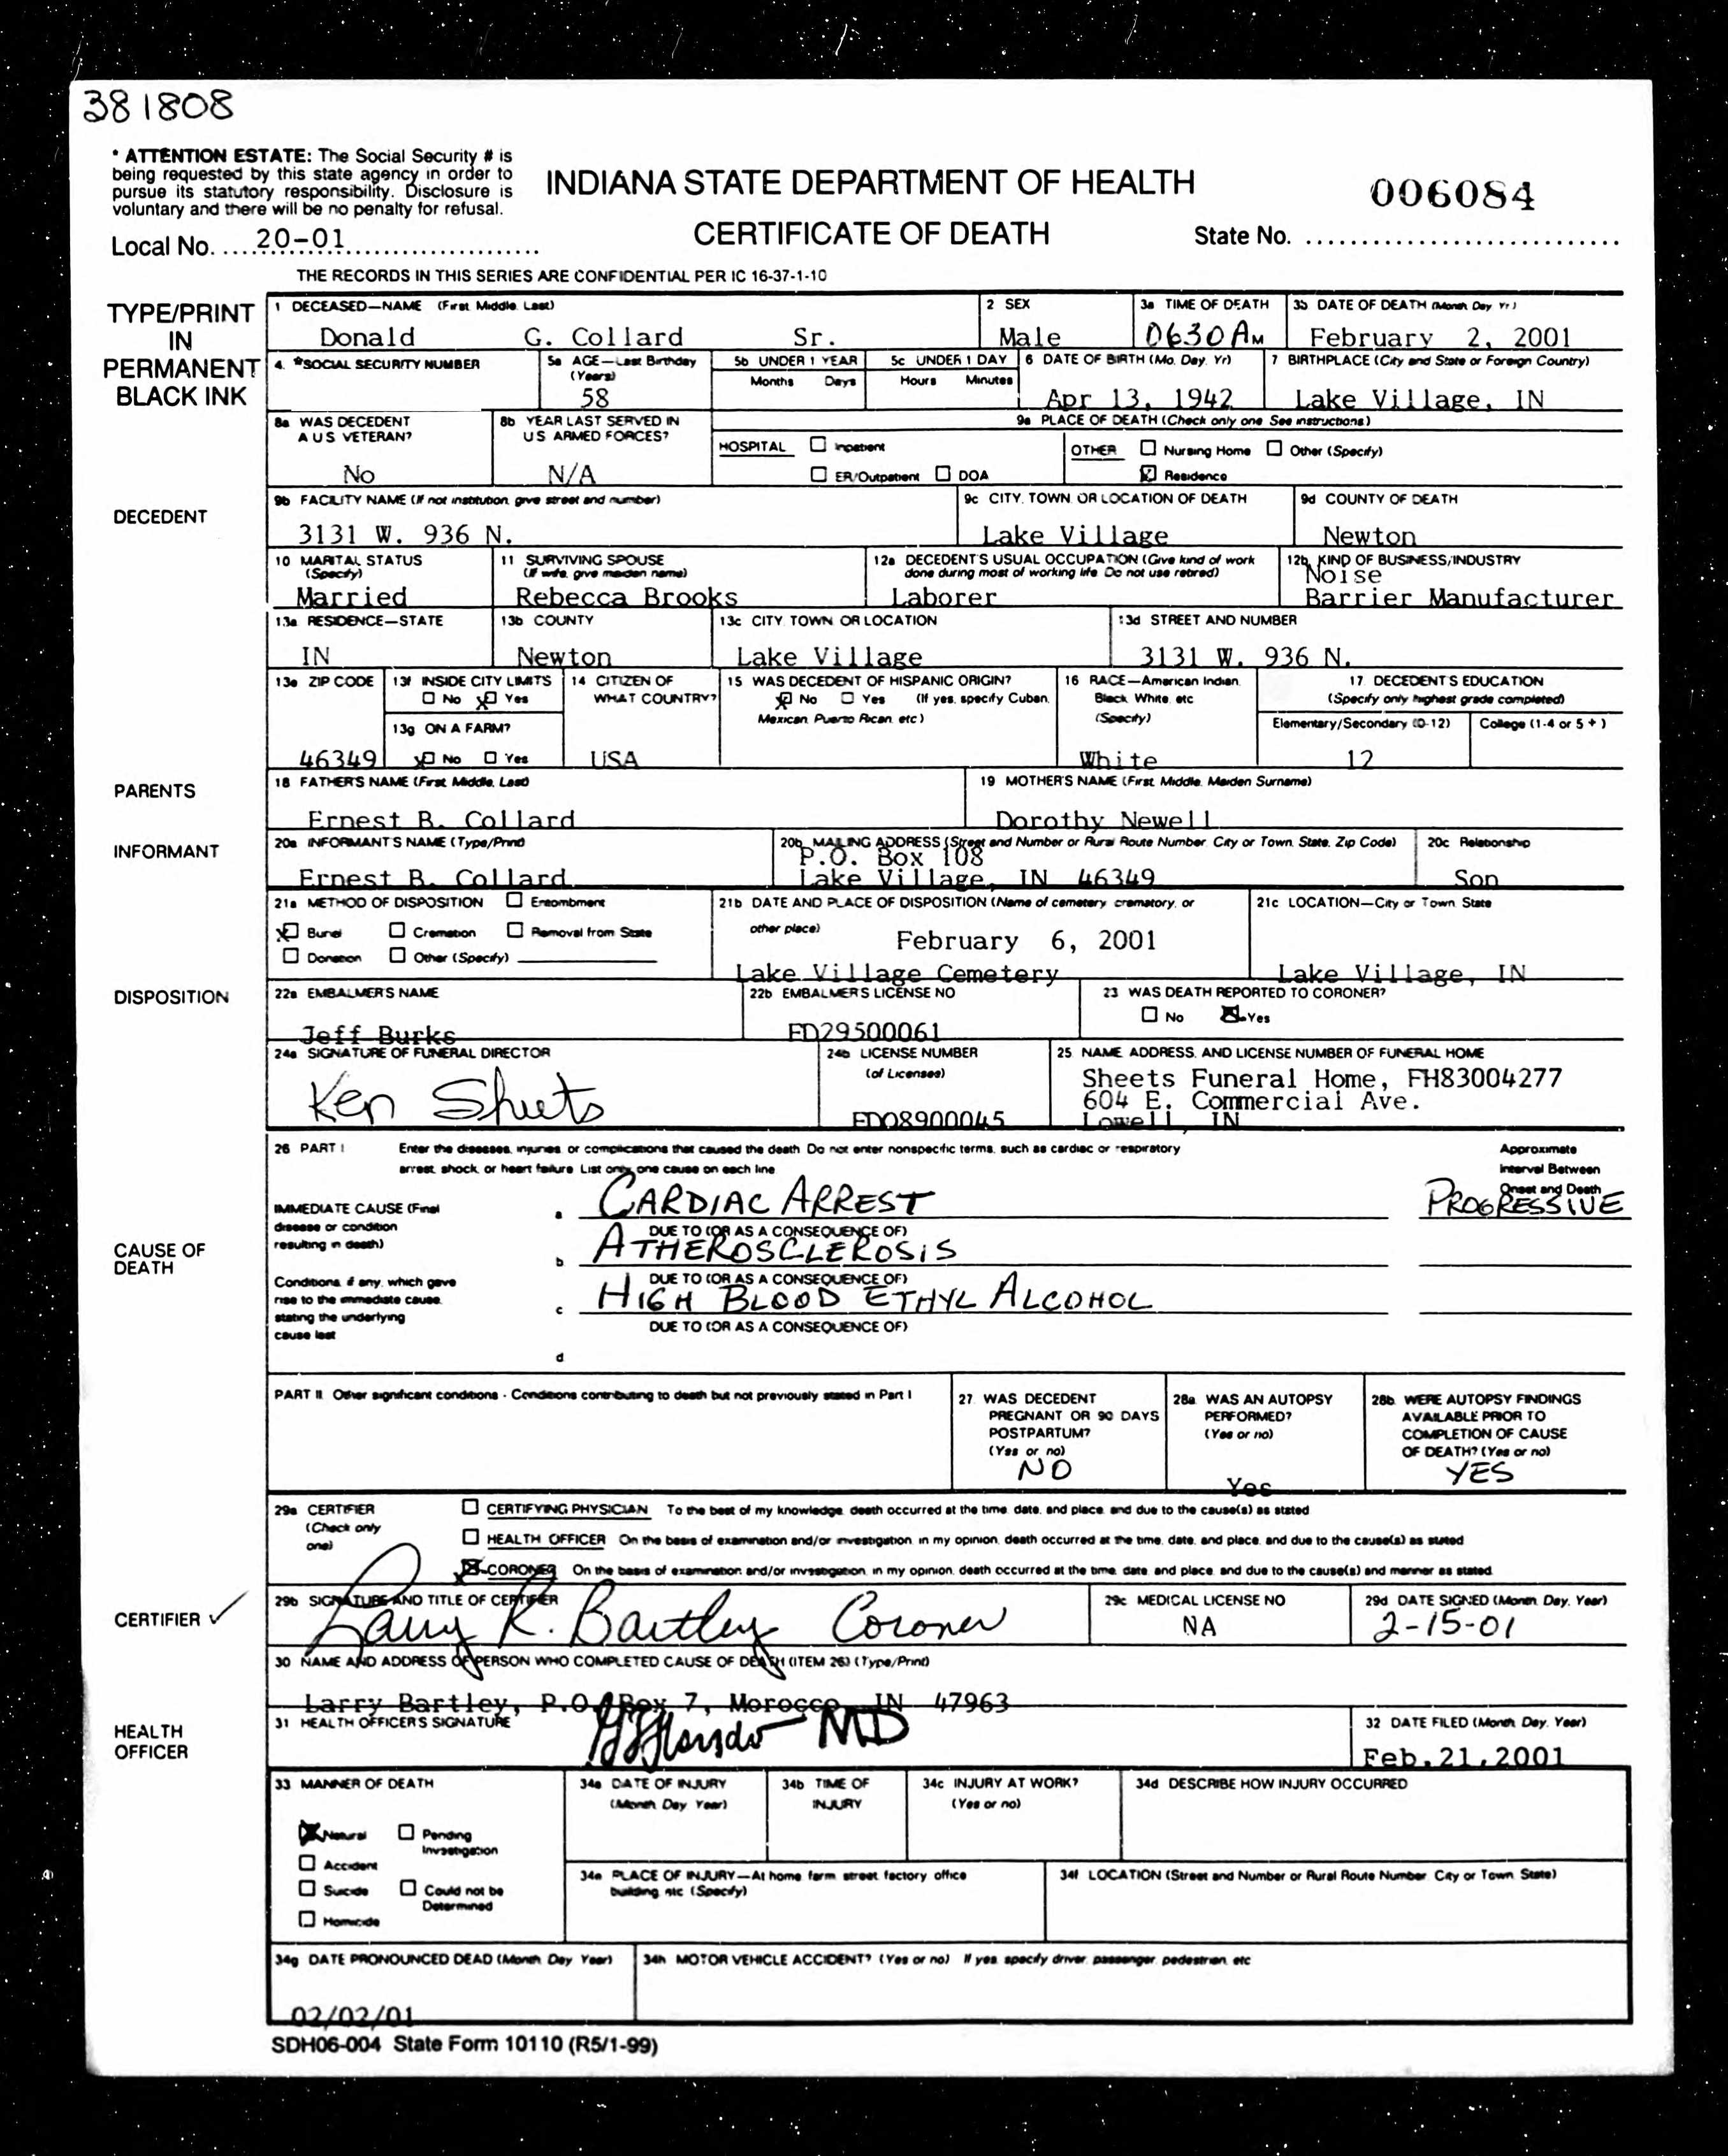 381808
* ATTENTION ESTATE: The Social Security # is
being requested by this state agency in order to
pursue its statutory responsibility. Disclosure is
voluntary and there will be no penalty for refusal.
INDIANA STATE DEPARTMENT OF HEALTH
006084
Local No. ....20-01
CERTIFICATE OF DEATH
State No. ................................
THE RECORDS IN THIS SERIES ARE CONFIDENTIAL PER IC 16-37-1-10
TYPE/PRINT
IN
PERMANENT
BLACK INK
1 DECEASED—NAME (First Middle Last)
Donald G. Collard Sr.
2 SEX
Male
3a TIME OF DEATH
0630 AM
3b DATE OF DEATH (Month Day Yr)
February 2, 2001
4. *SOCIAL SECURITY NUMBER
5a AGE—Last Birthday
(Years)
58
5b UNDER 1 YEAR
Months Days
5c UNDER 1 DAY
Hours Minutes
6 DATE OF BIRTH (Mo. Day. Yr)
Apr 13, 1942
7 BIRTHPLACE (City and State or Foreign Country)
Lake Village, IN
8a WAS DECEDENT
A U S VETERAN?
No
8b YEAR LAST SERVED IN
U S ARMED FORCES?
N/A
9a PLACE OF DEATH (Check only one See instructions)
HOSPITAL Inpatient
ER/Outpatient DOA
OTHER Nursing Home Other (Specify)
Residence
DECEDENT
9b FACILITY NAME (If not institution, give street and number)
3131 W. 936 N.
9c CITY. TOWN OR LOCATION OF DEATH
Lake Village
9d COUNTY OF DEATH
Newton
10 MARITAL STATUS
(Specify)
Married
11 SURVIVING SPOUSE
(If wife, give maiden name)
Rebecca Brooks
12a DECEDENT'S USUAL OCCUPATION (Give kind of work
done during most of working life Do not use retired)
Laborer
12b KIND OF BUSINESS/INDUSTRY
Noise
Barrier Manufacturer
13a RESIDENCE—STATE
IN
13b COUNTY
Newton
13c CITY TOWN OR LOCATION
Lake Village
13d STREET AND NUMBER
3131 W. 936 N.
13e ZIP CODE
46349
13f INSIDE CITY LIMITS
No Yes
13g ON A FARM?
No Yes
14 CITIZEN OF
WHAT COUNTRY?
USA
15 WAS DECEDENT OF HISPANIC ORIGIN?
No Yes (If yes, specify Cuban,
Mexican, Puerto Rican, etc)
16 RACE—American Indian,
Black, White, etc
(Specify)
White
17 DECEDENT'S EDUCATION
(Specify only highest grade completed)
Elementary/Secondary (0-12)
12
College (1-4 or 5+)
PARENTS
18 FATHER'S NAME (First, Middle, Last)
Ernest B. Collard
19 MOTHER'S NAME (First, Middle, Maiden Surname)
Dorothy Newell
INFORMANT
20a INFORMANT'S NAME (Type/Print)
Ernest B. Collard
20b MAILING ADDRESS (Street and Number or Rural Route Number, City or Town, State, Zip Code)
P.O. Box 108
Lake Village, IN 46349
20c Relationship
Son
21a METHOD OF DISPOSITION Entombment
Burial Cremation Removal from State
Donation Other (Specify)
21b DATE AND PLACE OF DISPOSITION (Name of cemetery, crematory, or
other place)
February 6, 2001
Lake Village Cemetery
21c LOCATION—City or Town State
Lake Village, IN
DISPOSITION
22a EMBALMER'S NAME
Jeff Burks
22b EMBALMER'S LICENSE NO
FD29500061
23 WAS DEATH REPORTED TO CORONER?
No Yes
24a SIGNATURE OF FUNERAL DIRECTOR
Ken Sheets
24b LICENSE NUMBER
(of Licensee)
FD08900045
25 NAME ADDRESS. AND LICENSE NUMBER OF FUNERAL HOME
Sheets Funeral Home, FH83004277
604 E. Commercial Ave.
Lowell, IN
26 PART I Enter the diseases, injuries, or complications that caused the death Do not enter nonspecific terms, such as cardiac or respiratory
arrest, shock, or heart failure List only one cause on each line
Approximate
Interval Between
Onset and Death
CAUSE OF
DEATH
IMMEDIATE CAUSE (Final
disease or condition
resulting in death)
a CARDIAC ARREST PROGRESSIVE
DUE TO (OR AS A CONSEQUENCE OF)
b ATHEROSCLEROSIS
Conditions, if any, which gave
rise to the immediate cause,
stating the underlying
cause last
DUE TO (OR AS A CONSEQUENCE OF)
c HIGH BLOOD ETHYL ALCOHOL
DUE TO (OR AS A CONSEQUENCE OF)
d
PART II Other significant conditions - Conditions contributing to death but not previously stated in Part I
27 WAS DECEDENT
PREGNANT OR 90 DAYS
POSTPARTUM?
(Yes or no)
NO
28a WAS AN AUTOPSY
PERFORMED?
(Yes or no)
Yes
28b WERE AUTOPSY FINDINGS
AVAILABLE PRIOR TO
COMPLETION OF CAUSE
OF DEATH? (Yes or no)
YES
29a CERTIFIER
(Check only
one)
CERTIFYING PHYSICIAN To the best of my knowledge, death occurred at the time, date, and place, and due to the cause(s) as stated
HEALTH OFFICER On the basis of examination and/or investigation, in my opinion, death occurred at the time, date, and place, and due to the cause(s) as stated
CORONER On the basis of examination and/or investigation, in my opinion, death occurred at the time, date, and place, and due to the cause(s) and manner as stated
CERTIFIER ✓
29b SIGNATURE AND TITLE OF CERTIFIER
Larry R. Bartley Coroner
29c MEDICAL LICENSE NO
NA
29d DATE SIGNED (Month, Day, Year)
2-15-01
30 NAME AND ADDRESS OF PERSON WHO COMPLETED CAUSE OF DEATH (ITEM 26) (Type/Print)
Larry Bartley, P.O. Box 7, Morocco, IN 47963
HEALTH
OFFICER
31 HEALTH OFFICER'S SIGNATURE
MD
32 DATE FILED (Month, Day, Year)
Feb.21,2001
33 MANNER OF DEATH
Natural Pending
Investigation
Accident
Suicide Could not be
Determined
Homicide
34a DATE OF INJURY
(Month, Day Year)
34b TIME OF
INJURY
34c INJURY AT WORK?
(Yes or no)
34d DESCRIBE HOW INJURY OCCURRED
34e PLACE OF INJURY—At home, farm, street, factory, office
building, etc (Specify)
34f LOCATION (Street and Number or Rural Route Number, City or Town, State)
34g DATE PRONOUNCED DEAD (Month, Day Year)
02/02/01
34h MOTOR VEHICLE ACCIDENT? (Yes or no) If yes, specify driver, passenger, pedestrian, etc
SDH06-004 State Form 10110 (R5/1-99)